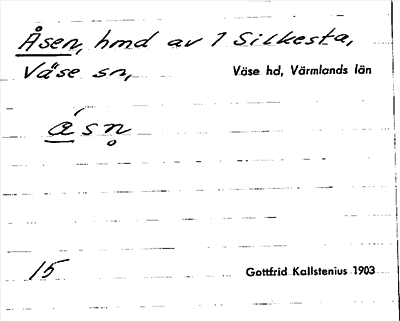 Åsen, hmd av 1 Silkesta,
Väse sn, Väse hd, Värmlands län
ǻsn̥
15 Gottfrid Kallstenius 1903